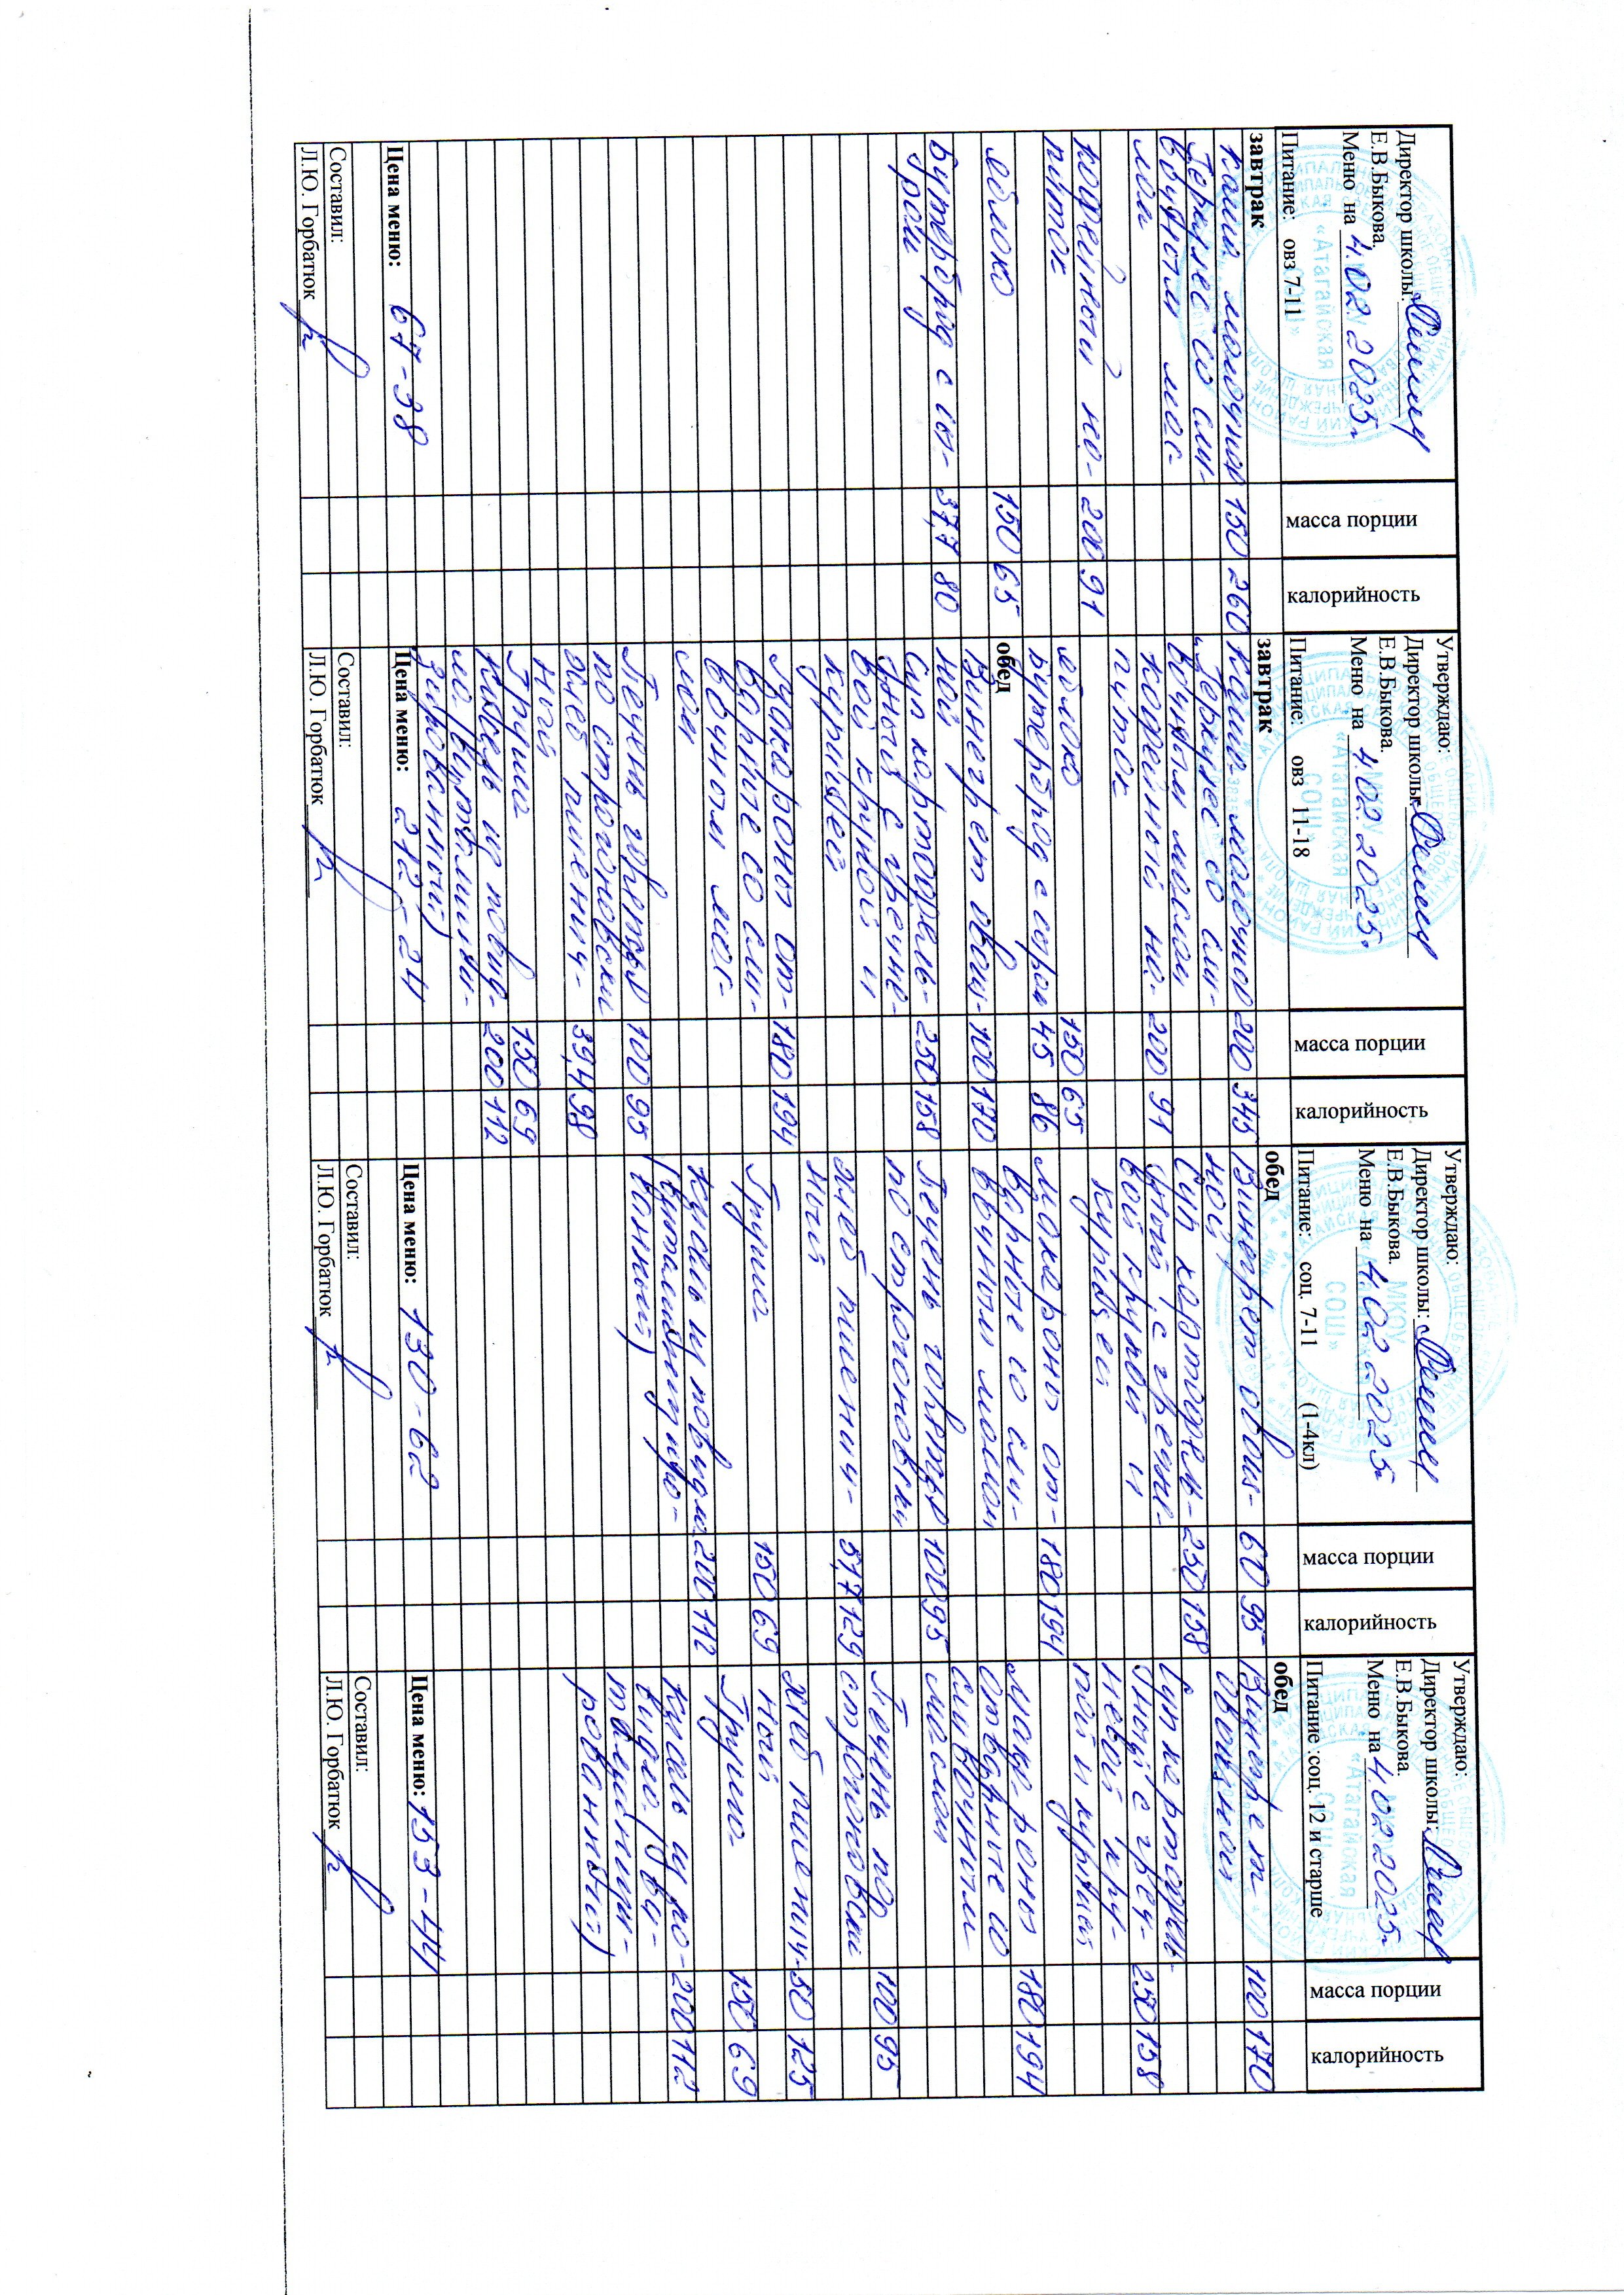 Директор школы:
Е.В.Быкова.
Меню на 4.02 2025г
Питание: овз 7-11
масса порции
калорийность
завтрак
Каша молочная 150 260
"Геркулес" со сли-
вочным мас-
лом
кофейный на- 200 91
питок
яблоко 150 65
Бутерброд с сы- 37,7 80
ром
Цена меню: 67-38
Составил:
Л.Ю. Горбатюк
Утверждаю:
Директор школы:
Е.В.Быкова.
Меню на 4.02.2025г
Питание: овз 11-18
масса порции
калорийность
завтрак
Каша молочная 200 345
"Геркулес" со сли-
вочным маслом
кофейный на- 200 91
питок
яблоко 150 65
Бутерброд с сыром 45 86
обед
Винегрет овощ- 100 170
ной
Суп картофель- 250 158
ный с гречне-
вой крупой и
курицей
Макароны от- 180 194
варные со сли-
вочным мас-
лом
Печень говяжья 100 95
по строгановски
хлеб пшенич- 39,4 98
ный
Груша 150 69
Кисель из повид- 200 112
ла (витамини-
зированный)
Цена меню: 212-24
Составил:
Л.Ю. Горбатюк
Утверждаю:
Директор школы:
Е.В.Быкова.
Меню на 4.02 2025г
Питание: соц. 7-11 (1-4кл)
масса порции
калорийность
обед
Винегрет овощ- 60 95
ной
Суп картофель- 250 158
ный с гречне-
вой крупой и
курицей
Макароны от- 180 194
варные со сли-
вочным маслом
Печень говяжья 100 95
по строгановски
хлеб пшенич- 51,7 129
ный
Груша 150 69
Кисель из повидла 200 112
(витаминизиро-
ванный)
Цена меню: 130-62
Составил:
Л.Ю. Горбатюк
Утверждаю:
Директор школы:
Е.В.Быкова.
Меню на 4.02 2025г
Питание :соц. 12 и старше
масса порции
калорийность
обед
Винегрет 100 170
овощной
Суп картофель-
ный с греч- 250 158
невой кру-
пой и курицей
Макароны 180 194
отварные со
сливочным
маслом
Печень по 100 95
строгановски
Хлеб пшенич- 50 125
ный
Груша 150 69
Кисель из по- 200 112
видла (ви-
таминизи-
рованный)
Цена меню: 153-44
Составил:
Л.Ю. Горбатюк